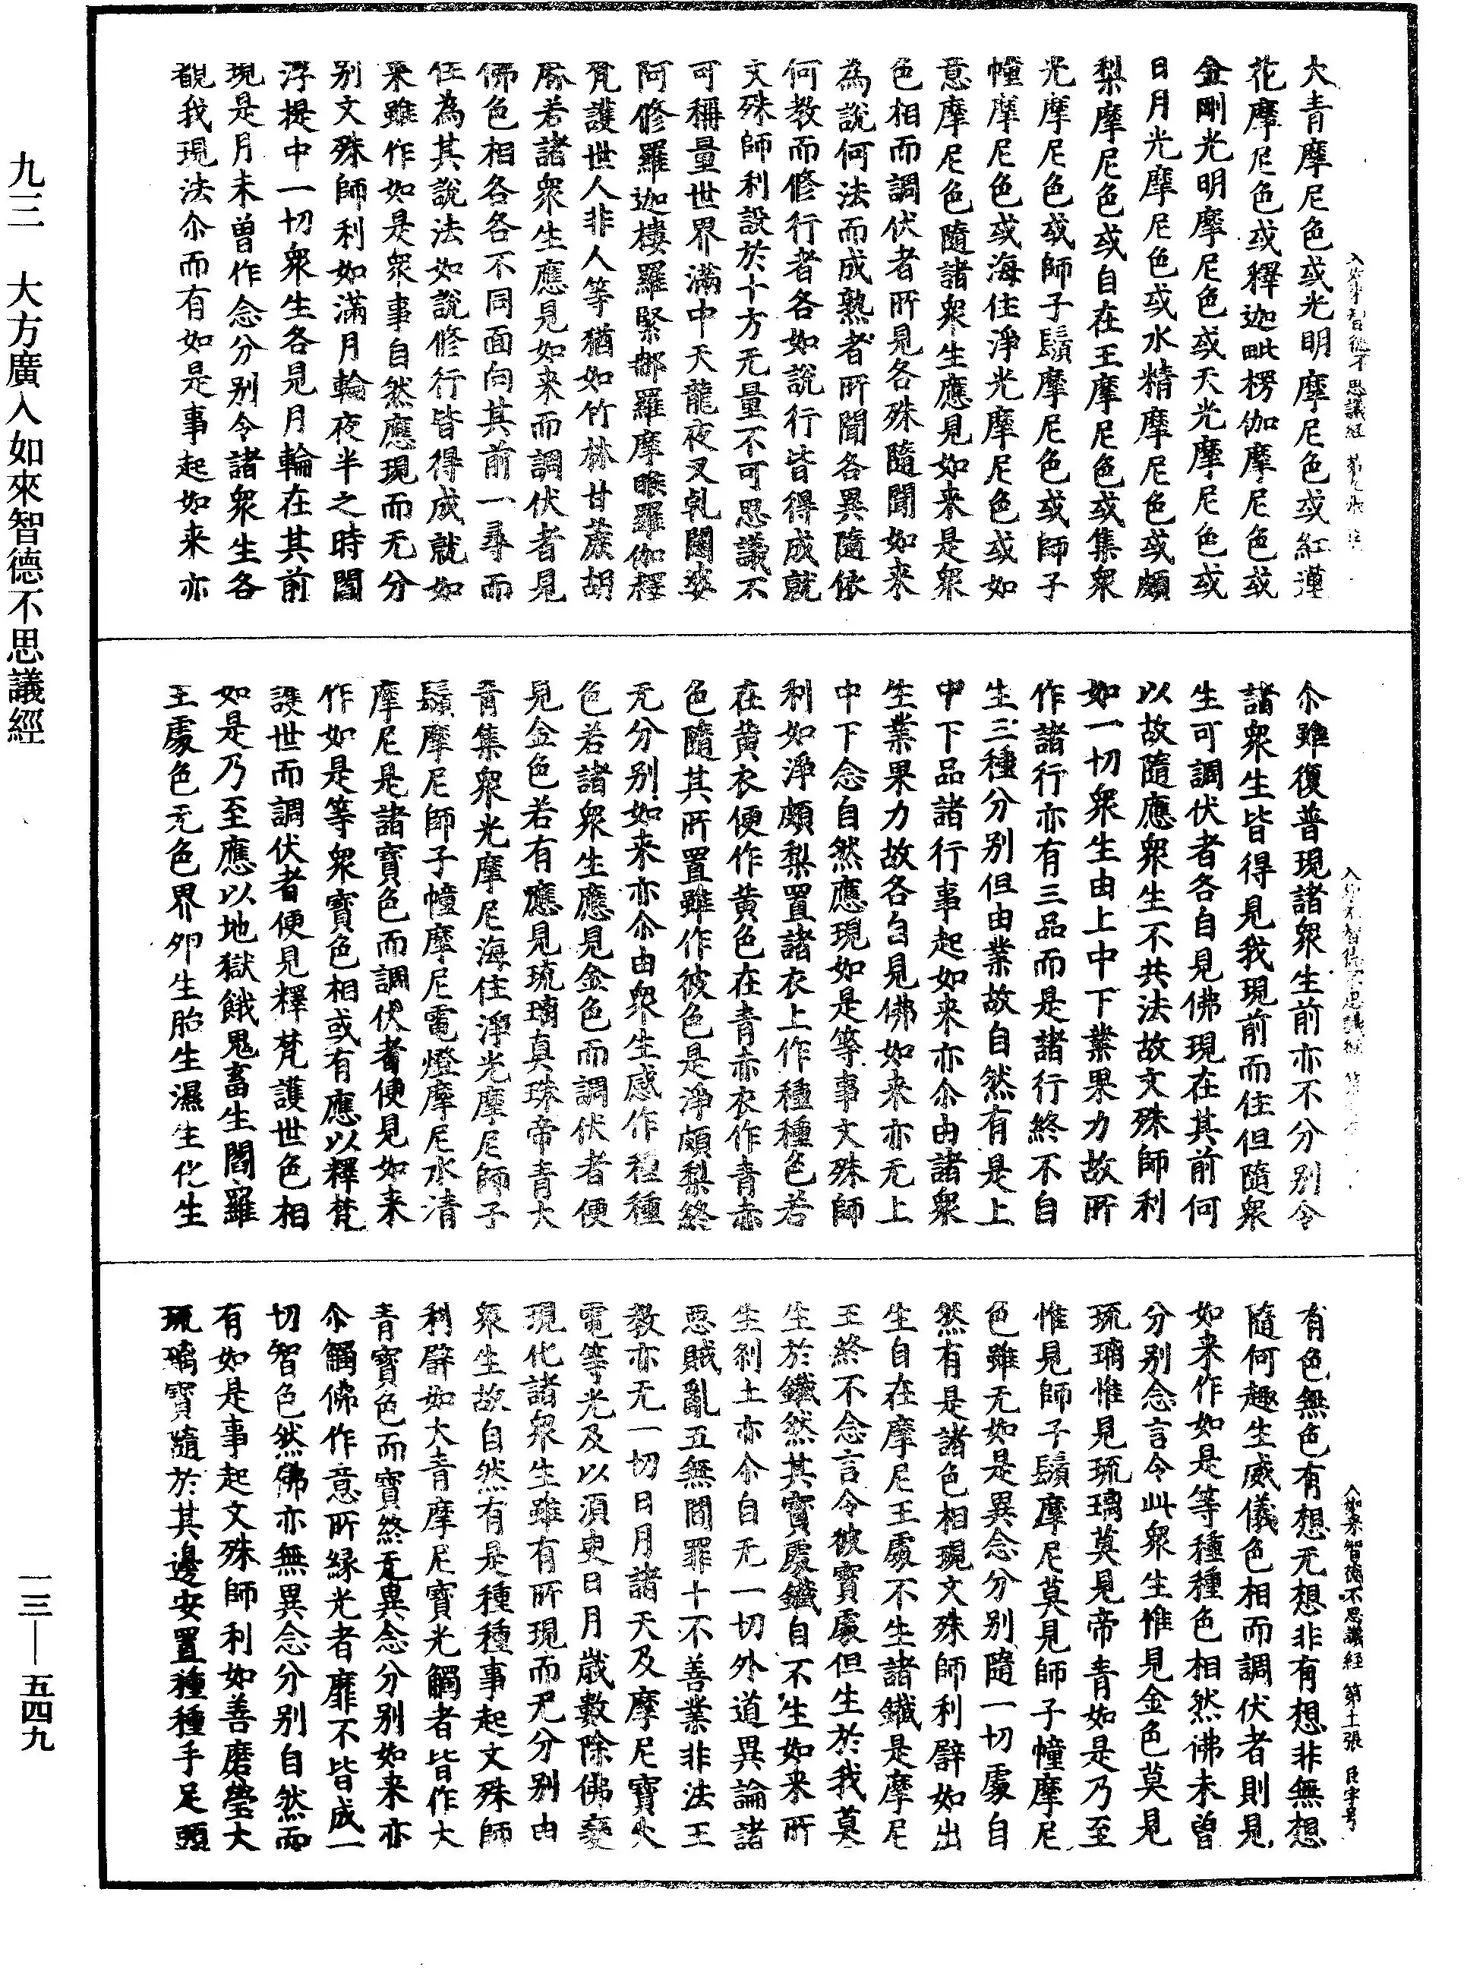 大青摩尼色或光明摩尼色或紅蓮
花摩尼色或釋迦毗楞伽摩尼色或
金剛光明摩尼色或天光摩尼色或
日月光摩尼色或水精摩尼色或頗
梨摩尼色或自在王摩尼色或集衆
光摩尼色或師子鬚摩尼色或師子
幢摩尼色或海住淨光摩尼色或如
意摩尼色隨諸衆生應見如来是衆
色相而調伏者所見各殊隨聞如来
為說何法而成熟者所聞各異隨依
何教而修行者各如說行皆得成就
文殊師利設於十方无量不可思議不
可稱量世界滿中天龍夜叉乹闥婆
阿修羅迦樓羅緊那羅摩睺羅伽釋
梵護世人非人等猶如竹林甘蔗胡
麻若諸衆生應見如来而調伏者見
佛色相各各不同面向其前一尋而
住為其說法如說修行皆得成就如
来雖作如是衆事自然應現而无分
别文殊師利如滿月輪夜半之時閻
浮提中一切衆生各見月輪在其前
現是月未曾作念分别令諸衆生各
覩我現法尒而有如是事起如来亦
尒雖復普現諸衆生前亦不分别令
諸衆生皆得見我現前而住但隨衆
生可調伏者各自見佛現在其前何
以故隨應衆生不共法故文殊師利
如一切衆生由上中下業果力故所
作諸行亦有三品而是諸行終不自
生三種分别但由業故自然有是上
中下品諸行事起如来亦尒由諸衆
生業果力故各自見佛如来亦无上
中下念自然應現如是等事文殊師
利如淨頗梨置諸衣上作種種色若
在黄衣便作黄色在青赤衣作青赤
色隨其所置雖作彼色是淨頗梨終
无分别如来亦尒由衆生感作種種
色若諸衆生應見金色而調伏者便
見金色若有應見琉璃真珠帝青大
青集衆光摩尼海住淨光摩尼師子
鬚摩尼師子幢摩尼電燈摩尼水清
摩尼是諸寶色而調伏者便見如来
作如是等衆寶色相或有應以釋梵
護世而調伏者便見釋梵護世色相
如是乃至應以地獄餓鬼畜生閻羅
王處色无色界卵生胎生濕生化生
有色無色有想无想非有想非無想
隨何趣生威儀色相而調伏者則見
如来作如是等種種色相然佛未曾
分别念言令此衆生惟見金色莫見
琉璃惟見琉璃莫見帝青如是乃至
惟見師子鬚摩尼莫見師子幢摩尼
色雖无如是異念分别隨一切處自
然有是諸色相現文殊師利譬如出
生自在摩尼王處不生諸鐵是摩尼
王終不念言令彼寶處但生於我莫
生於鐵然其寶處鐵自不生如来所
生剎土亦尒自无一切外道異論諸
惡賊亂五無間罪十不善業非法王
教亦无一切日月諸天及摩尼寶火
電等光及以須臾日月歲數除佛變
現化諸衆生雖有所現而无分别由
衆生故自然有是種種事起文殊師
利譬如大青摩尼寶光觸者皆作大
青寶色而寶終无異念分别如来亦
尒觸佛作意所緣光者靡不皆成一
切智色然佛亦無異念分别自然而
有如是事起文殊師利如善磨瑩大
琉璃寶隨於其邊安置種種手足頭
入如来智德不思議經 第十張 臣字号
九三　大方廣入如來智德不思議經
一三—五四九